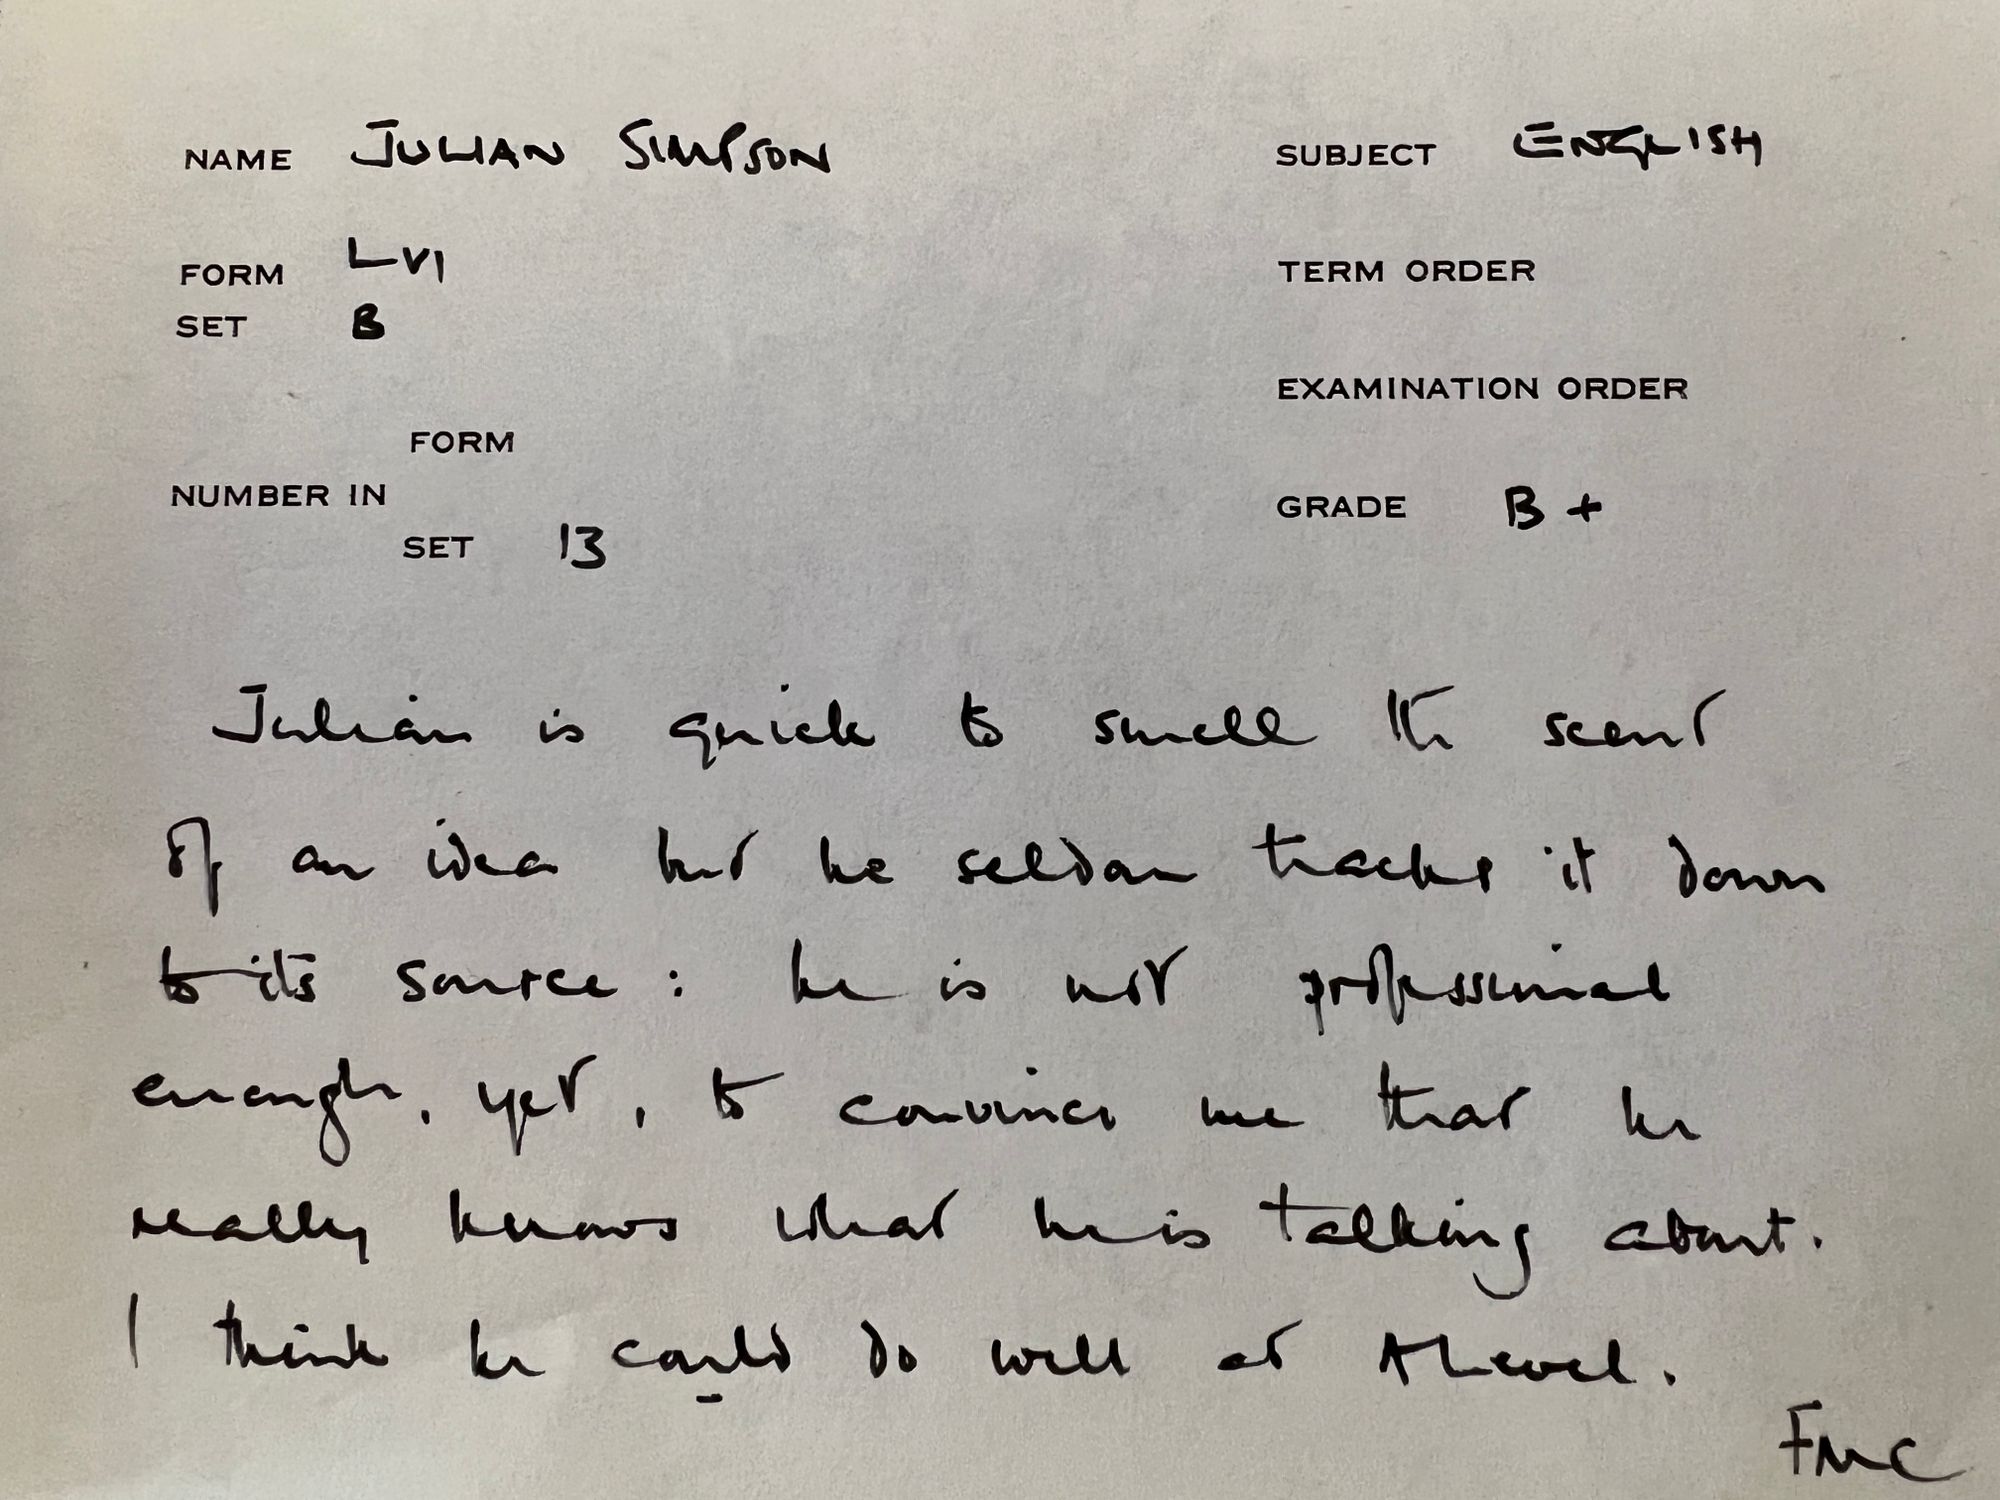 NAME JULIAN SIMPSON SUBJECT ENGLISH
FORM LVI TERM ORDER
SET B
EXAMINATION ORDER
FORM
NUMBER IN
GRADE B+
SET 13
Julian is quick to smell the scent
of an idea but he seldom tracks it down
to its source: he is not professional
enough, yet, to convince me that he
really knows what he is talking about.
I think he could do well at A Level.
FMC